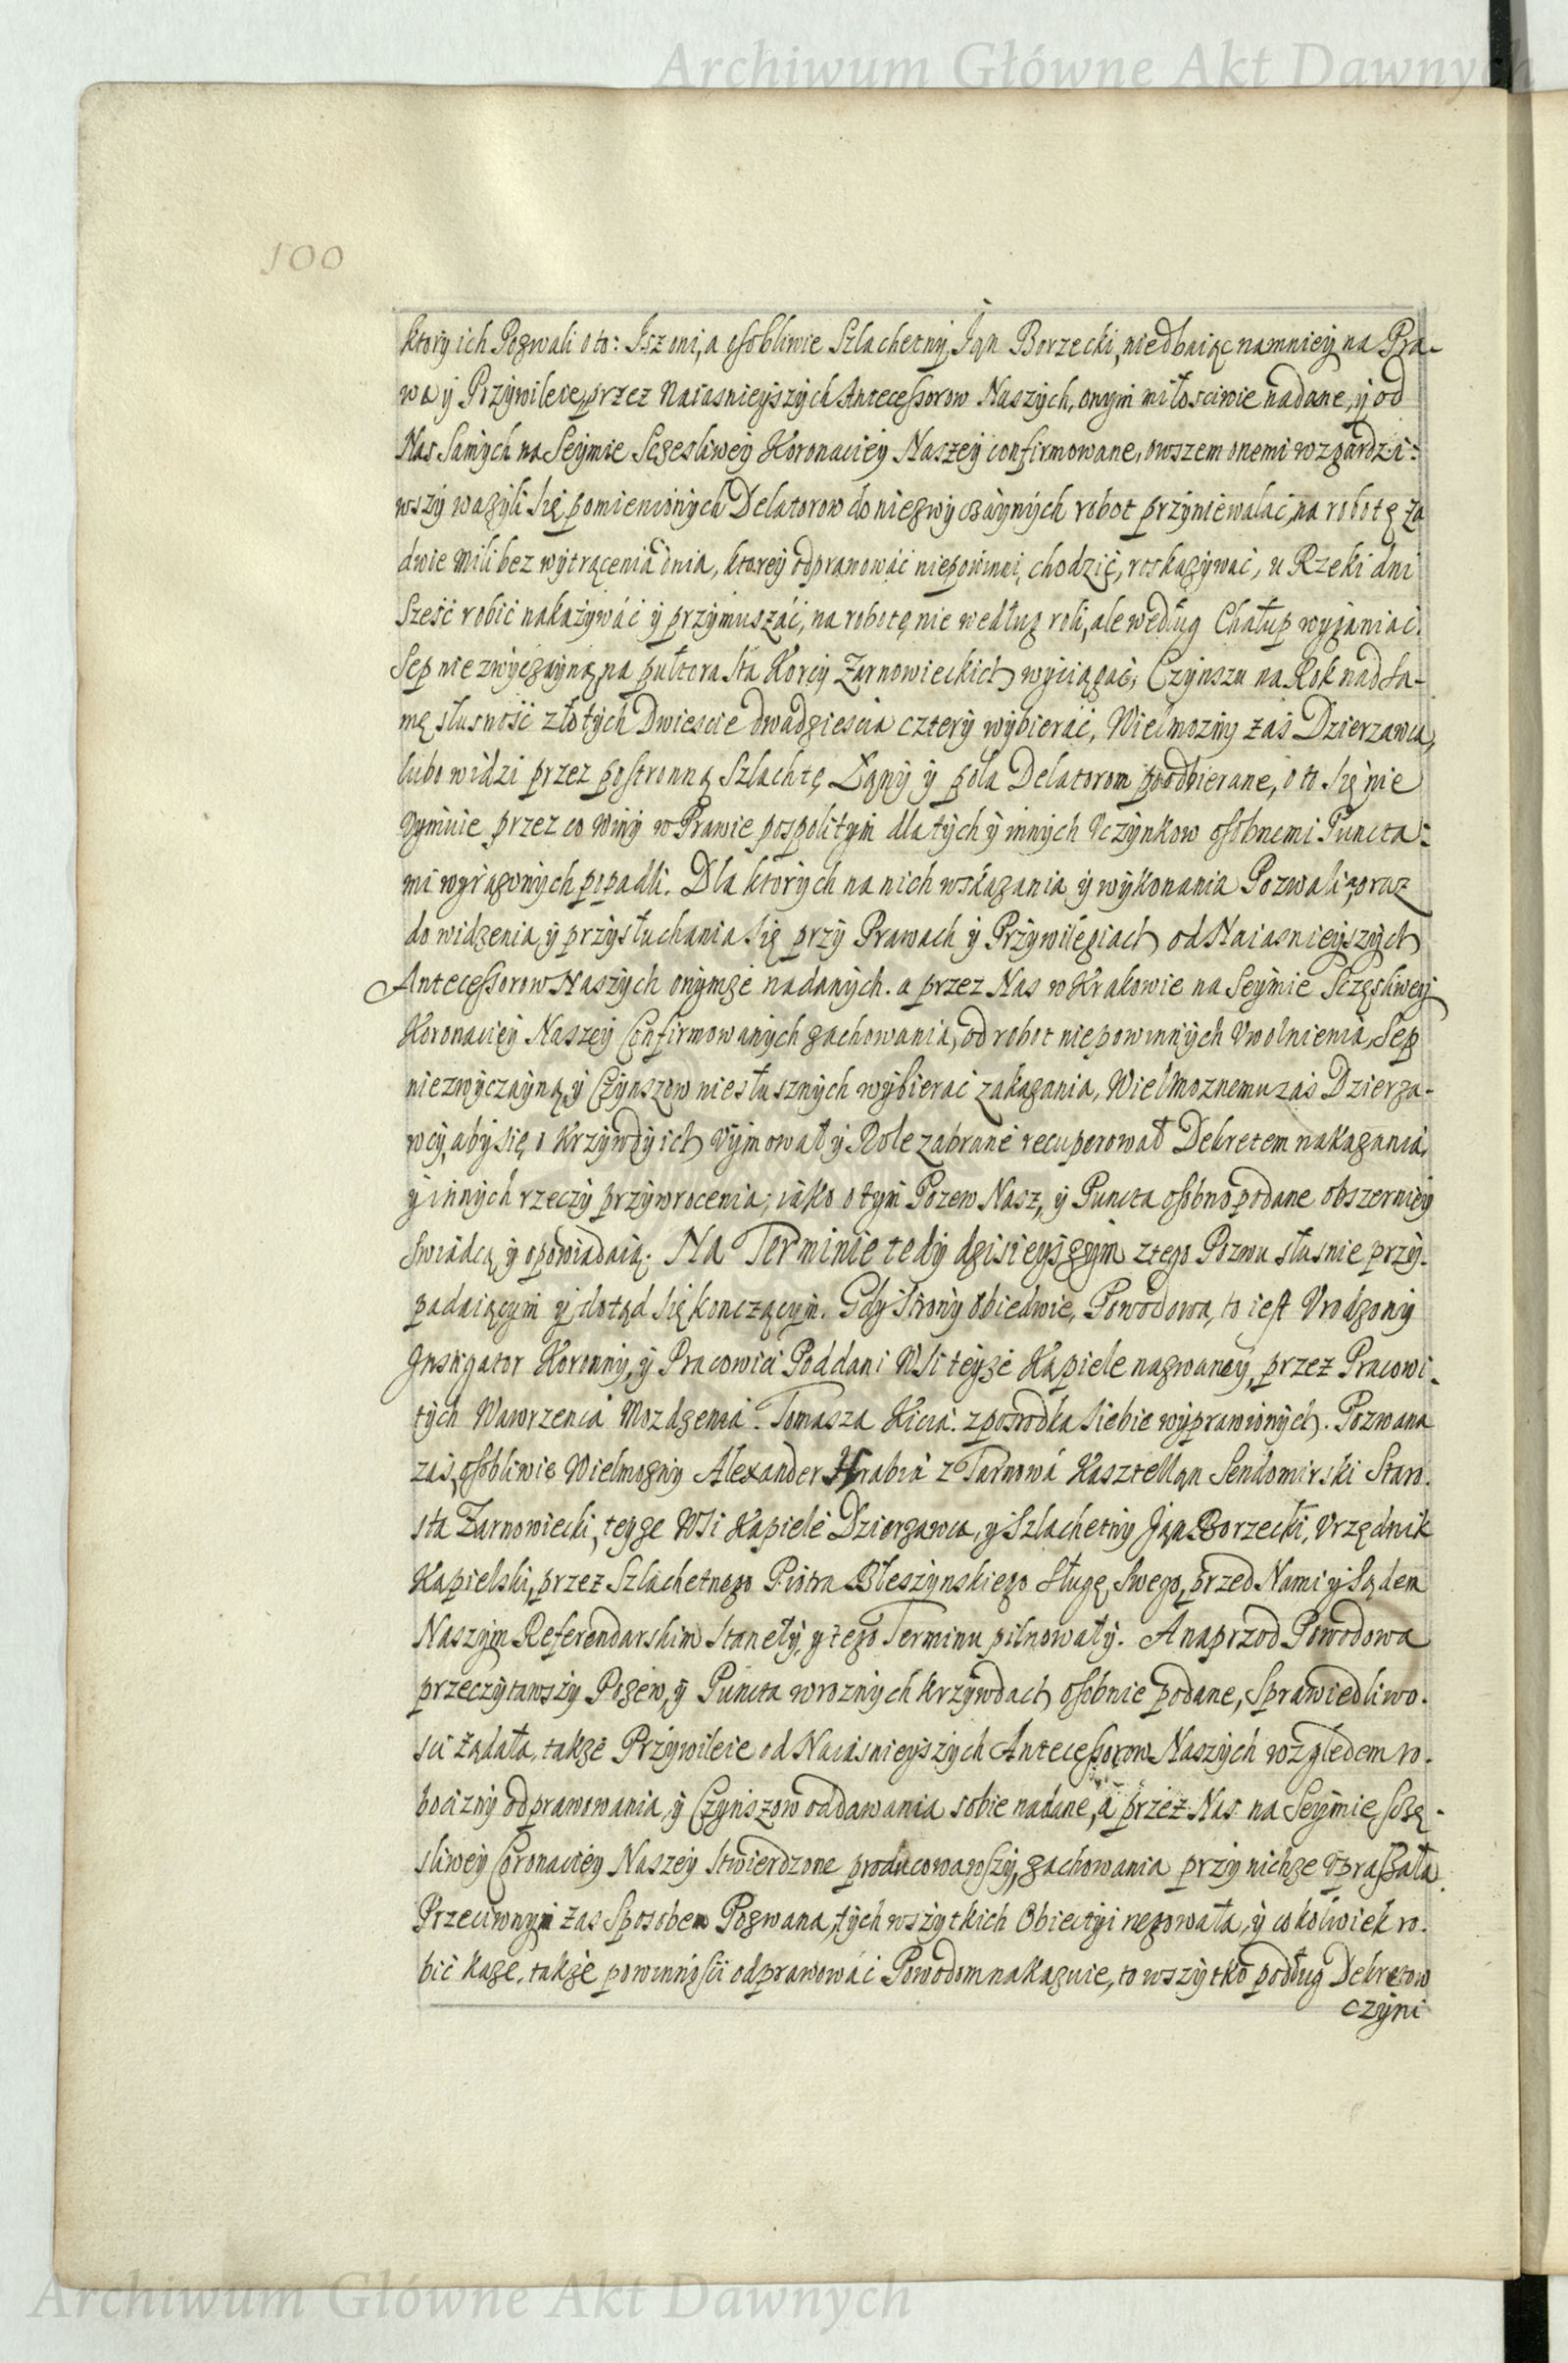 Archiwum Główne Akt Dawnych
100
ktory ich Pozwali o to: Isz oni, a osobliwie Szlachetny Ian Borzecki, niedbaiąc namniey na Pra-
wa y Przywileie, przez Naiasnieyszych Antecessorow Naszych, onym miłosciwie nadane, y od
Nas Samych na Seymie Sczesliwey Koronaciey Naszey confirmowane, owszem onemi wzgardzi-
wszy wazyli się pomienionych Delatorow do niezwyczaynych robot przyniewalac, na robotę za
dwie mili bez wytrącenia dnia, ktorey odprawować niepowinni, chodzić, roskazywać, u Rzeki dni
sześć robić nakazywáć y przymuszáć, na robotę nie według roli, ale według Chałup wyganiać.
Sep niezwyczayną, na pułtora sta Korcy Zarnowieckich wyciągać, Czynszu na Rok nad sa-
mę słusność złotych Dwiescie dwadziescia cztery wybierać, Wielmozny zaś Dzierzawca,
lubo widzi przez postronną Szlachtę Łąny y pola Delatorom poodbierane, o to się nie
Uymuie przez co winy w Prawie pospolitym dla tych y innych Uczynkow osobnemi Puncta-
mi wyrazonych popadli. Dla ktorych na nich wskazania y wykonania Pozwali, oraz
do widzenia, y przysłuchania się przy Prawach y Przywilegiach od Naiasnieyszych
Antecessorow Naszych onymze nadanych. a przez Nas w Krakowie na Seymie Sczęsliwey
Koronaciey Naszey Confirmowanych zachowania, od robot niepowinnych Uwolnienia, Sep
niezwyczayną, y Czynszow niesłusznych wybierać zakazania, Wielmoznemu zaś Dzierza-
wcy, aby się o Krzywdy ich Uymował y Role zabrane recuperował Dekretem nakazania,
y innych rzeczy przywrocenia; iako o tym Pozew Nasz, y Puncta osobno podane obszerniey
swiadcą y opowiadaią. Na Terminie tedy dzisieyszym z tego Pozwu słusnie przy-
padaiącym y dotąd się konczącym. Gdy Strony obiedwie, Powodowa, to iest Urodzony
Instigator Koronny, y Pracowici Poddani Wsi teyze Kąpiele nazwaney, przez Pracowi-
tych Wawrzenca Mozdzenia. Tomasza Kicia. zposrodka siebie wyprawionych. Pozwana
zaś, osobliwie Wielmozny Alexander Hrabia z Tarnowá Kasztellan Sendomirski Staro-
sta Zarnowiecki, teyze Wsi Kąpiele Dzierzawca, y Szlachetny Jan Borzecki, Urzędnik
Kąpielski, przez Szlachetnego Piotra Bleszynskiego Sługę Swego, przed Nami y Sądem
Naszym Referendarskim Stanęły, y tego Terminu pilnowały. A naprzod Powodowa
przeczytawszy Pozew, y Puncta w roznych krzywdach osobnie podane, Sprawiedliwo-
sci żądała, takze Przywileie od Naiásnieyszych Antecessorow Naszych względem ro-
bocizny odprawowania, y Czynszow oddawania sobie nadane, a przez Nas na Seymie Sczę-
sliwey Coronaciey Naszey stwierdzone producowawszy, zachowania przy nichze Upraszała.
Przeciwnym zas Sposobem Pozwana, tych wszytkich Obiectyi negowała, y cokolwiek ro-
bić kaze, takze powinnosci odprawowáć Powodom nakazuie, to wszytko podług Dekretow
czyni
Archiwum Główne Akt Dawnych